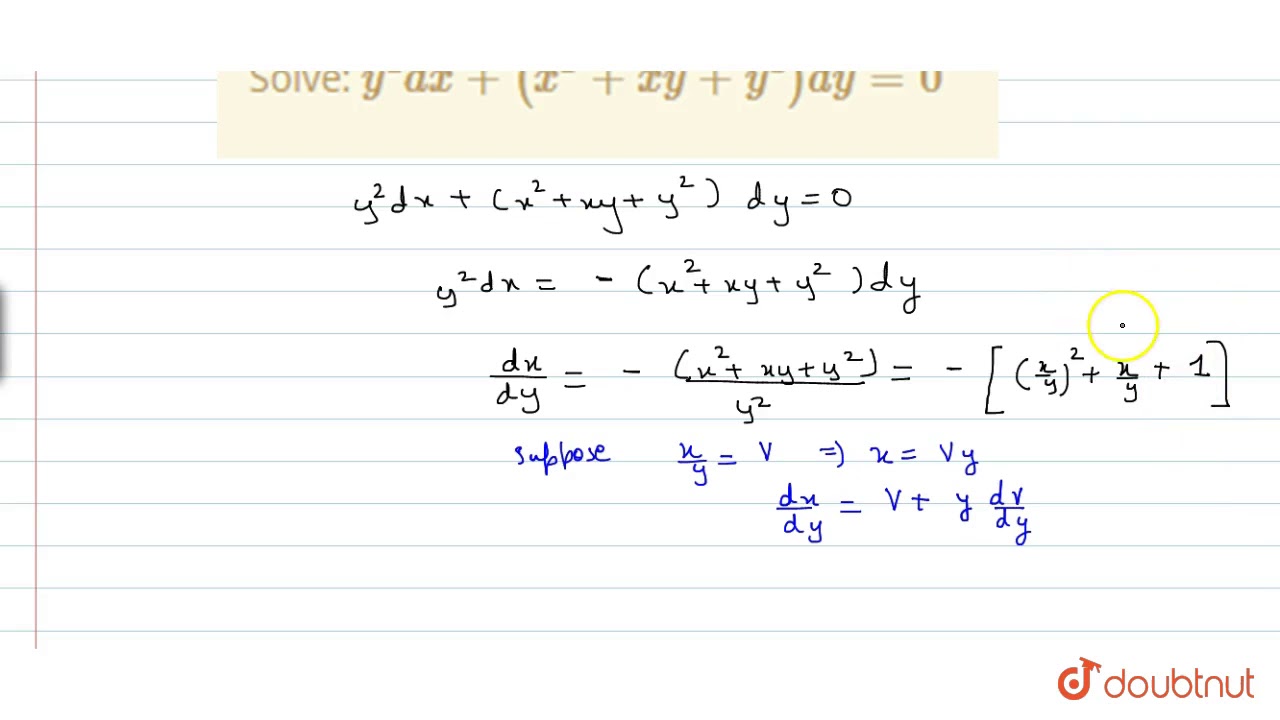 Solve: y²dx + (x² + xy + y²)dy = 0
y²dx + (x² + xy + y²) dy = 0
y²dx = - (x² + xy + y²) dy
dx/dy = - (x² + xy + y²)/y² = - [(x/y)² + x/y + 1]
suppose x/y = V ⇒ x = Vy
dx/dy = V + y dV/dy
doubtnut